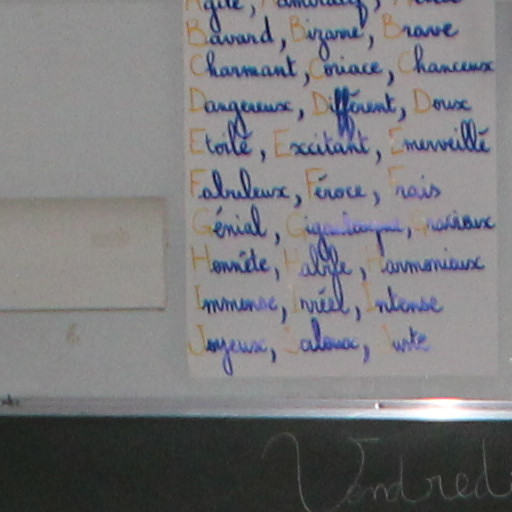 Agile,
Bavard, Bizarre, Brave
Charmant, Coriace, Chanceux
Dangereux, Différent, Doux
Etoilé, Excitant, Emerveillé
Fabuleux, Féroce, Frais
Génial, Gigantesque, Gracieux
Honnête, Habile, Harmonieux
Immense, Irréel, Intense
Joyeux, Jaloux, Juste
Vendredi